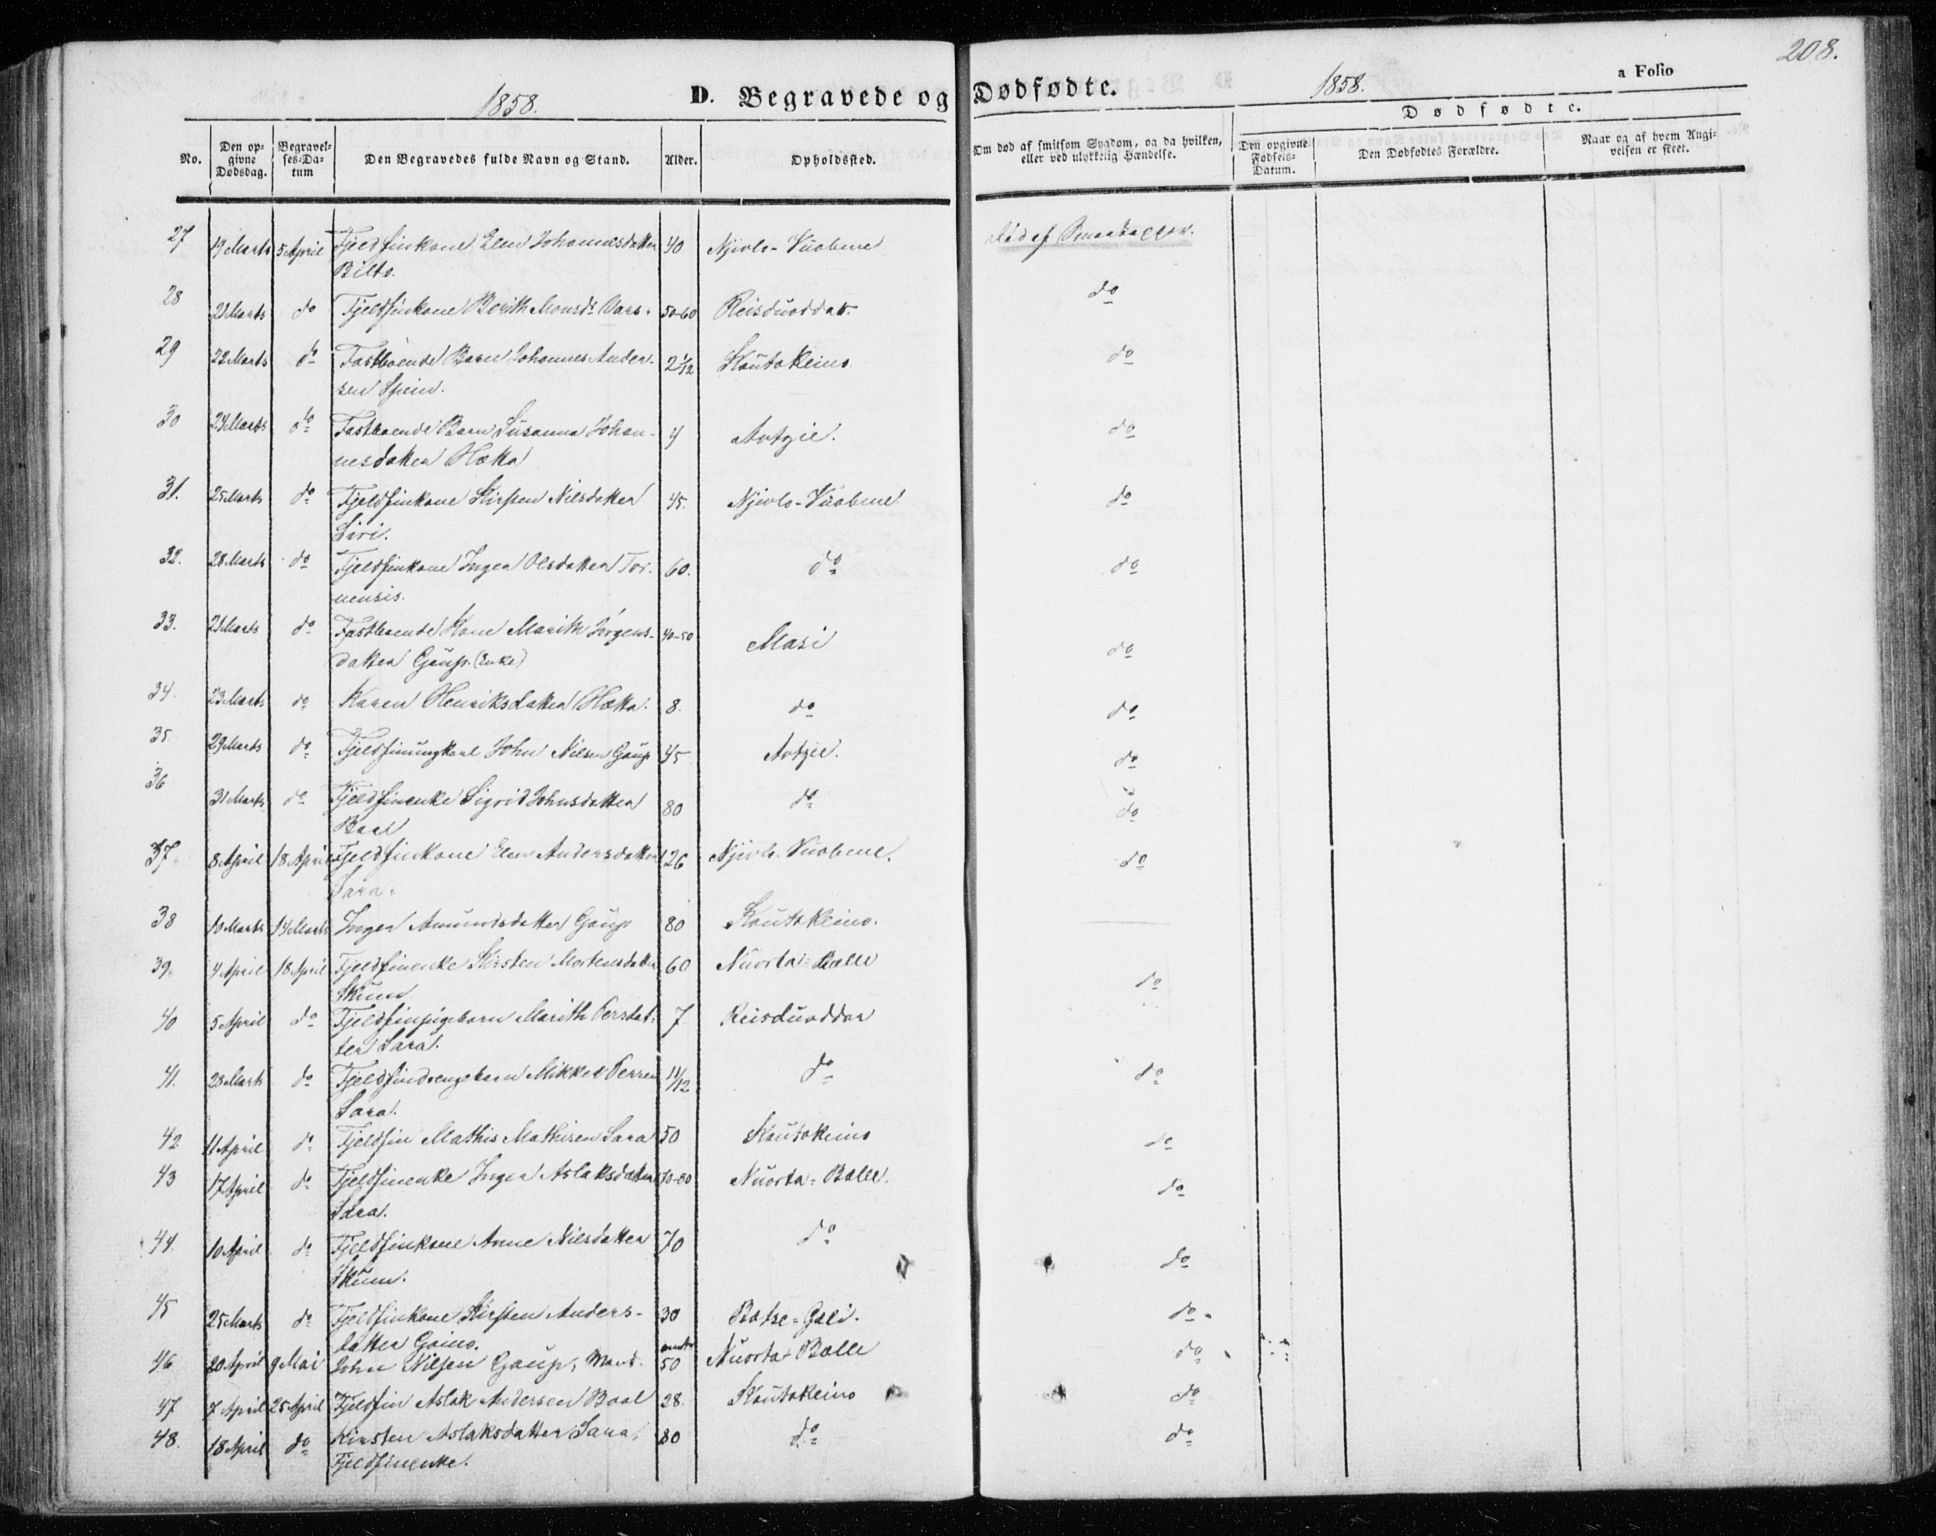 208.
1858. D. Begravede og Dødfødte. 1858. a Folio
No.
Den opgivne Dødsdag.
Begravelses-Datum
Den Begravedes fulde Navn og Stand.
Alder.
Opholdssted.
Om død af smitsom Sygdom, og da hvilken, eller ved ulykkelig Hændelse.
Dødfødte.
Den opgivne Fødsels-Datum.
Den Dødfødtes Forældre.
Naar og af hvem Angivelsen er skeet.
27 19 Marts 5 April Fjeldfinkone Elen Johannesdatter 40 Njivlo-Vuobme død af Smaakopper.
Bilto.
28 21 Marts do Fjeldfinkone Berith Monsdr Vars. 50-60 Reisduoddar do
29 22 Marts do Fastboende Barn Johannes Ander- 2 1/12 Koutokeino do
sen Spein.
30 24 Marts do Fastboende Barn Susanna Johan- 4 Avtzie. do
nesdatter Hætta
31. 25 Marts do Fjeldfinkone Kirsten Nilsdatter 45. Njivlo-Vuobme do
Siri.
32. 28 Marts do Fjeldfinkone Inger Olsdatter Tor- 60. do do
nensis.
33. 21 Marts do Fastboende Kone Marith Jørgens- 40-50 Masi do
datter Gaup. (Enke)
34. 23 Marts do Karen Henriksdatter Hætta. 8. do do
35 29 Marts do Fjeldfinungkarl John Nilsen Gaup 45 Avtzie. do
36 31 Marts do Fjeldfinenke Sigrid Johnsdatter 80 do do
Baal
37 8 April 18 April Fjeldfinkone Elen Andersdatter 26 Njivlo-Vuobme. do
Sara.
38 10 Marts 14 Marts Inger Amundsdatter Gaup 80 Koutokeino.
39. 4 April 18 April Fjeldfinenke Kirsten Mortensdatter 60 Nuorta-Balle do
Skum
40 5 April do Fjeldfinpigebarn Marith Persdat- 7 Reisduoddar
ter Sara.
41. 28 Marts do Fjeldfindrengebarn Mikkel Persen 11/12 do do
Sara.
42 11 April do Fjeldfin Mathis Mathisen Sara 50 Koutokeino do
43 17 April do Fjeldfinenke Inger Aslaksdatter 70-80 Nuorta-Balle. do
Sara.
44. 10 April do Fjeldfinkone Anne Nilsdatter 70 do do
Skum.
45 25 Marts do Fjeldfinkone Kirsten Anders- 30 Batse-Gæli. do
datter Gaino.
46 20 April 9 Mai John Nilsen Gaup, Mand. 50 Nuorta-Balle do
47 7 April 25 April Fjeldfin Aslak Andersen Baal 28. Koutokeino do
48. 18 April do Kirsten Aslaksdatter Sara, 80 do do
Fjeldfinenke.